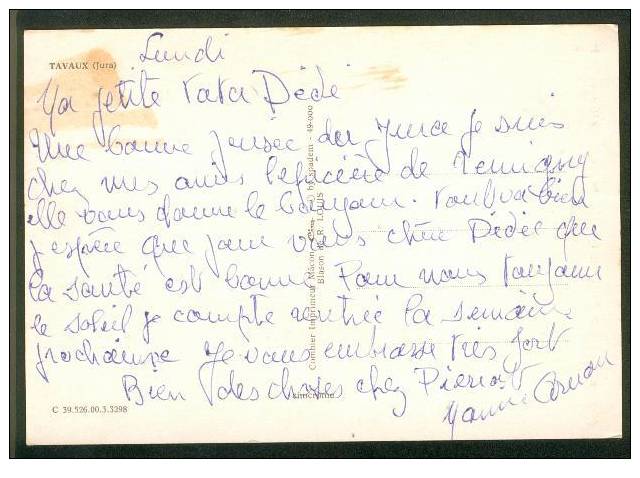 TAVAUX (Jura)
Lundi
Ma petite tata Dédé
Une bonne pensée du Jura je suis
chez mes amies l'épicière de
elle vous donne le bonjour. Tout va bien
j'espère que pour vous chère Dédée que
la santé est bonne Pour nous toujours
le soleil je compte rentrée la semaine
prochaine Je vous embrasse très fort
Bien des choses chez Pierrot
Combier Imprimeur Mâcon
Blason de R. LOUIS
C 39.526.00.3.3298